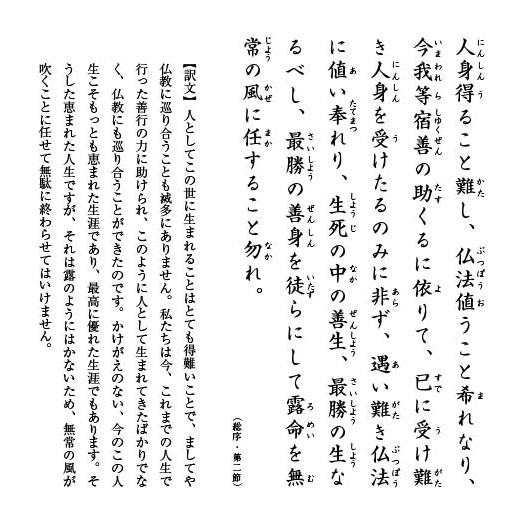 人身得ること難し、仏法値うこと希れなり、
今我等宿善の助くるに依りて、已に受け難
き人身を受けたるのみに非ず、遇い難き仏法
に値い奉れり、生死の中の善生、最勝の生な
るべし、最勝の善身を徒らにして露命を無
常の風に任すること勿れ。
（総序・第二節）
【訳文】人としてこの世に生まれることはとても得難いことで、ましてや
仏教に巡り合うことも滅多にありません。私たちは今、これまでの人生で
行った善行の力に助けられ、このように人として生まれてきたばかりでな
く、仏教にも巡り合うことができたのです。かけがえのない、今のこの人
生こそもっとも恵まれた生涯であり、最高に優れた生涯でもあります。そ
うした恵まれた人生ですが、それは露のようにはかないため、無常の風が
吹くことに任せて無駄に終わらせてはいけません。